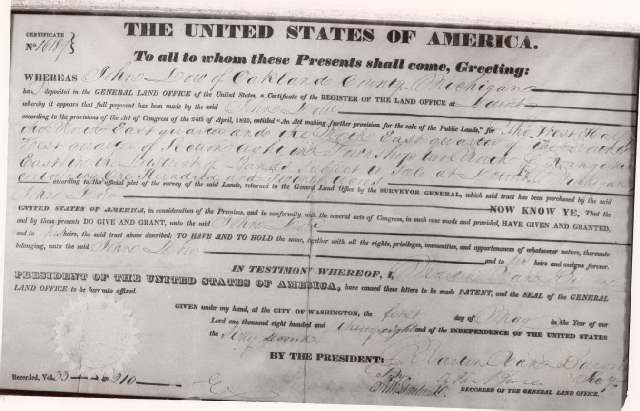 THE UNITED STATES OF AMERICA.
CERTIFICATE
No.
To all to whom these Presents shall come, Greeting:
WHEREAS John Dow of Oakland County Michigan
ha deposited in the GENERAL LAND OFFICE of the United States, a Certificate of the REGISTER OF THE LAND OFFICE at Detroit
whereby it appears that full payment has been made by the said John Dow
according to the provisions of the Act of Congress of the 24th April, 1820, entitled "An Act making further provision for the sale of the Public Lands," for The West Half
of the East quarter and the East quarter of the
West quarter of Section eight in Township two North of Range
East in the District of Lands Subject to Sale at Detroit Michigan
one Hundred and
according to the official plat of the survey of the said Lands, returned to the General Land Office by the SURVEYOR GENERAL, which said tract has been purchased by the said
John Dow NOW KNOW YE, That the
UNITED STATES OF AMERICA, in consideration of the Premises, and in conformity with the several acts of Congress, in such case made and provided, HAVE GIVEN AND GRANTED,
and by these presents DO GIVE AND GRANT, unto the said John Dow
and to his heirs, the said tract above described; TO HAVE AND TO HOLD the same, together with all the rights, privileges, immunities, and appurtenances of whatsoever nature, thereunto
belonging, unto the said John Dow and to his heirs and assigns forever.
IN TESTIMONY WHEREOF, I, Martin Van Buren
PRESIDENT OF THE UNITED STATES OF AMERICA, have caused these letters to be made PATENT, and the SEAL of the GENERAL
LAND OFFICE to be hereunto affixed.
GIVEN under my hand, at the CITY OF WASHINGTON, the first day of May in the Year of our
Lord one thousand eight hundred and thirty eight and of the INDEPENDENCE OF THE UNITED STATES
the Sixty Second
BY THE PRESIDENT: Martin Van Buren
By Sec'y.
RECORDER OF THE GENERAL LAND OFFICE.
Recorded, Vol. 310